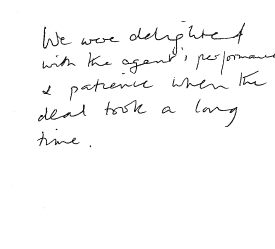 We were delighted
with the agent's performance
& patience when the
deal took a long
time.